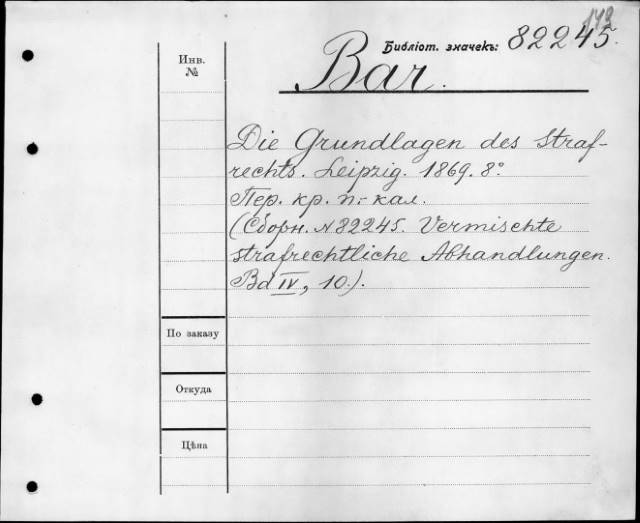 143
Библіот. значекъ: 82245.
Инв.
№
Bar.
Die Grundlagen des Straf-
rechts. Leipzig. 1869. 8°.
Пер. кр. п.-кал.
(Сборн. № 82245. Vermischte
strafrechtliche Abhandlungen.
Bd IV, 10.).
По заказу
Откуда
Цѣна